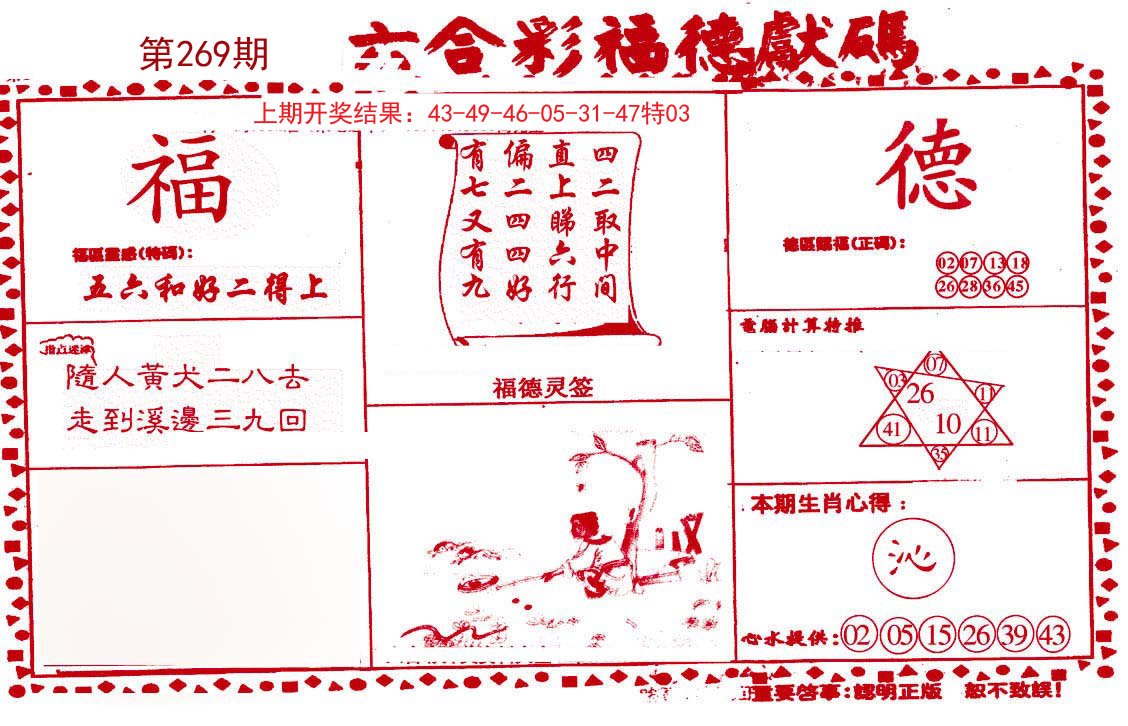 第269期
六合彩福德獻碼
上期开奖结果：43-49-46-05-31-47特03
福
福區靈感(特碼)：
五六和好二得上
隨人黃犬二八去
走到溪邊三九回
四二取中间
直上睇六行
偏二四四好
有七又有九
福德灵签
德
德區賜福(正碼)：
02 07 13 18
26 28 36 45
電腦計算特推
07
03 26 11
41 10 11
35
本期生肖心得：
沁
心水提供：02 05 15 26 39 43
重要啓事：認明正版 恕不致誤！